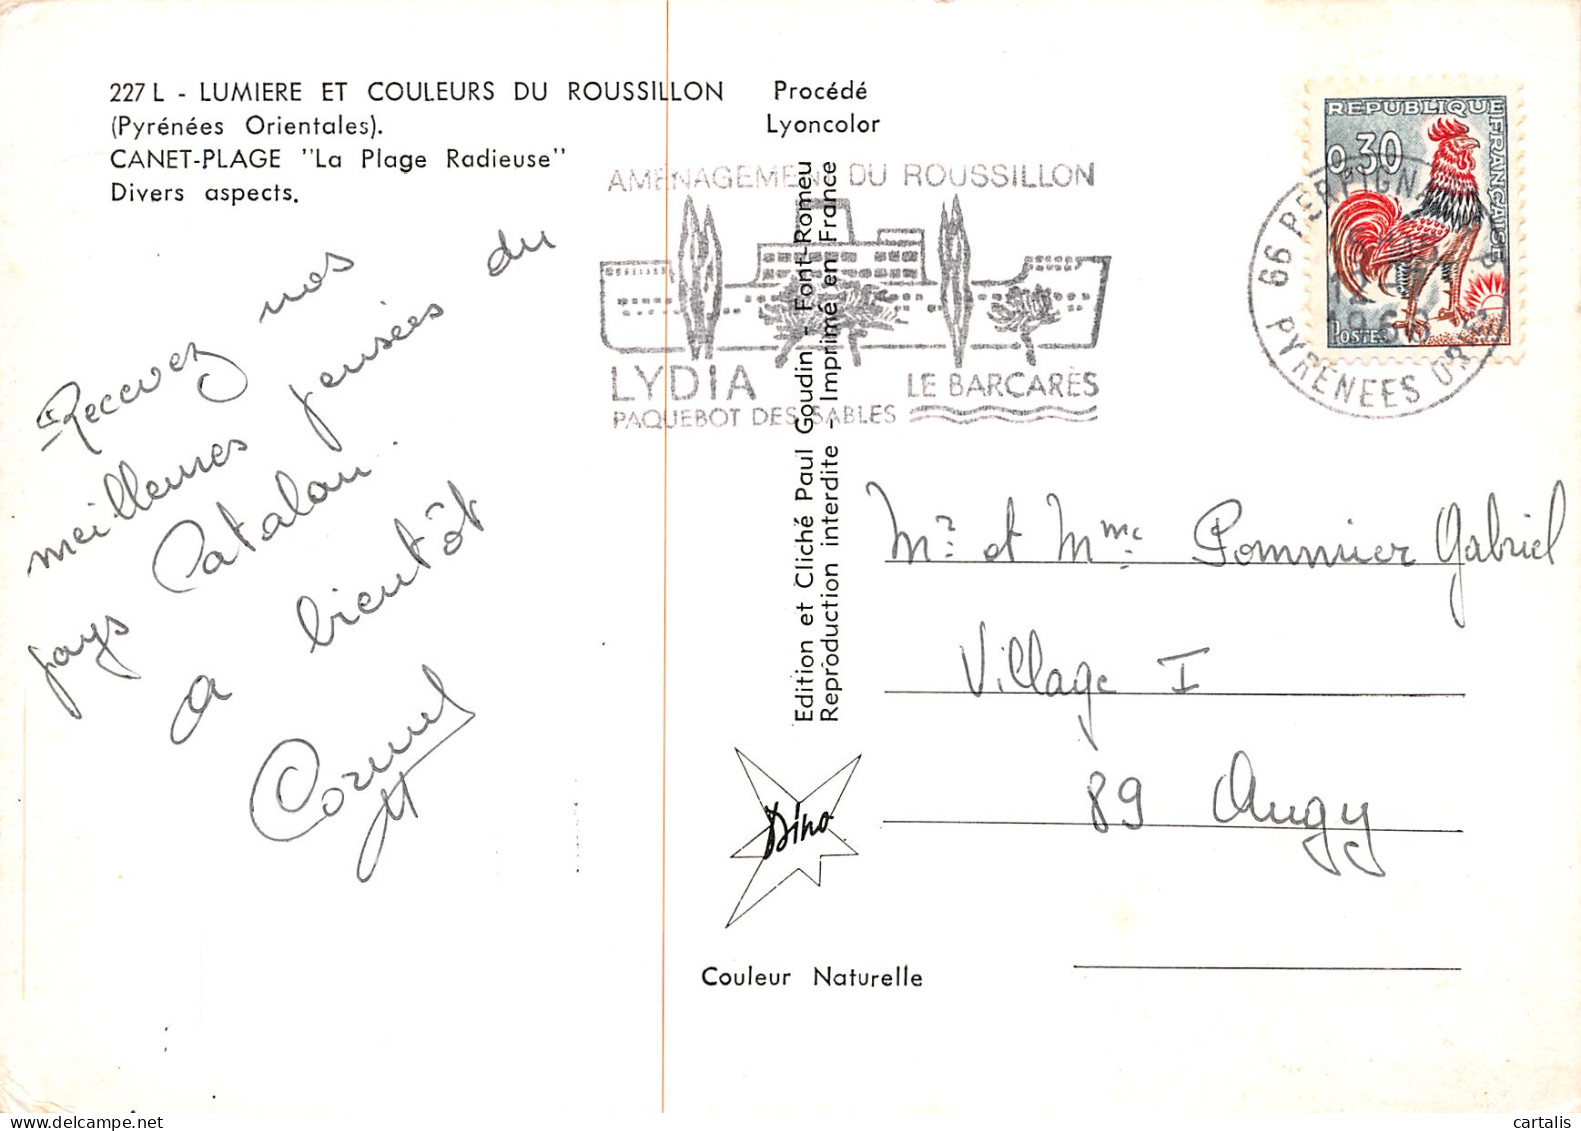 227 L - LUMIERE ET COULEURS DU ROUSSILLON
(Pyrénées Orientales).
CANET-PLAGE "La Plage Radieuse"
Divers aspects.
Procédé
Lyoncolor
REPUBLIQUE
FRANÇAISE
0,30
POSTES
66 PERPIGNAN
1968
PYRENEES ORles
AMENAGEMENT DU ROUSSILLON
LYDIA
PAQUEBOT DES SABLES
LE BARCARÈS
Recevez nos
meilleures pensées du
pays Catalan.
a bientôt
Edition et Cliché Paul Goudin - Font-Romeu
Reproduction interdite - Imprimé en France
Mr et Mme Pommier Gabriel
Village I
89 Augy
Dino
Couleur Naturelle
cartalis
www.delcampe.net